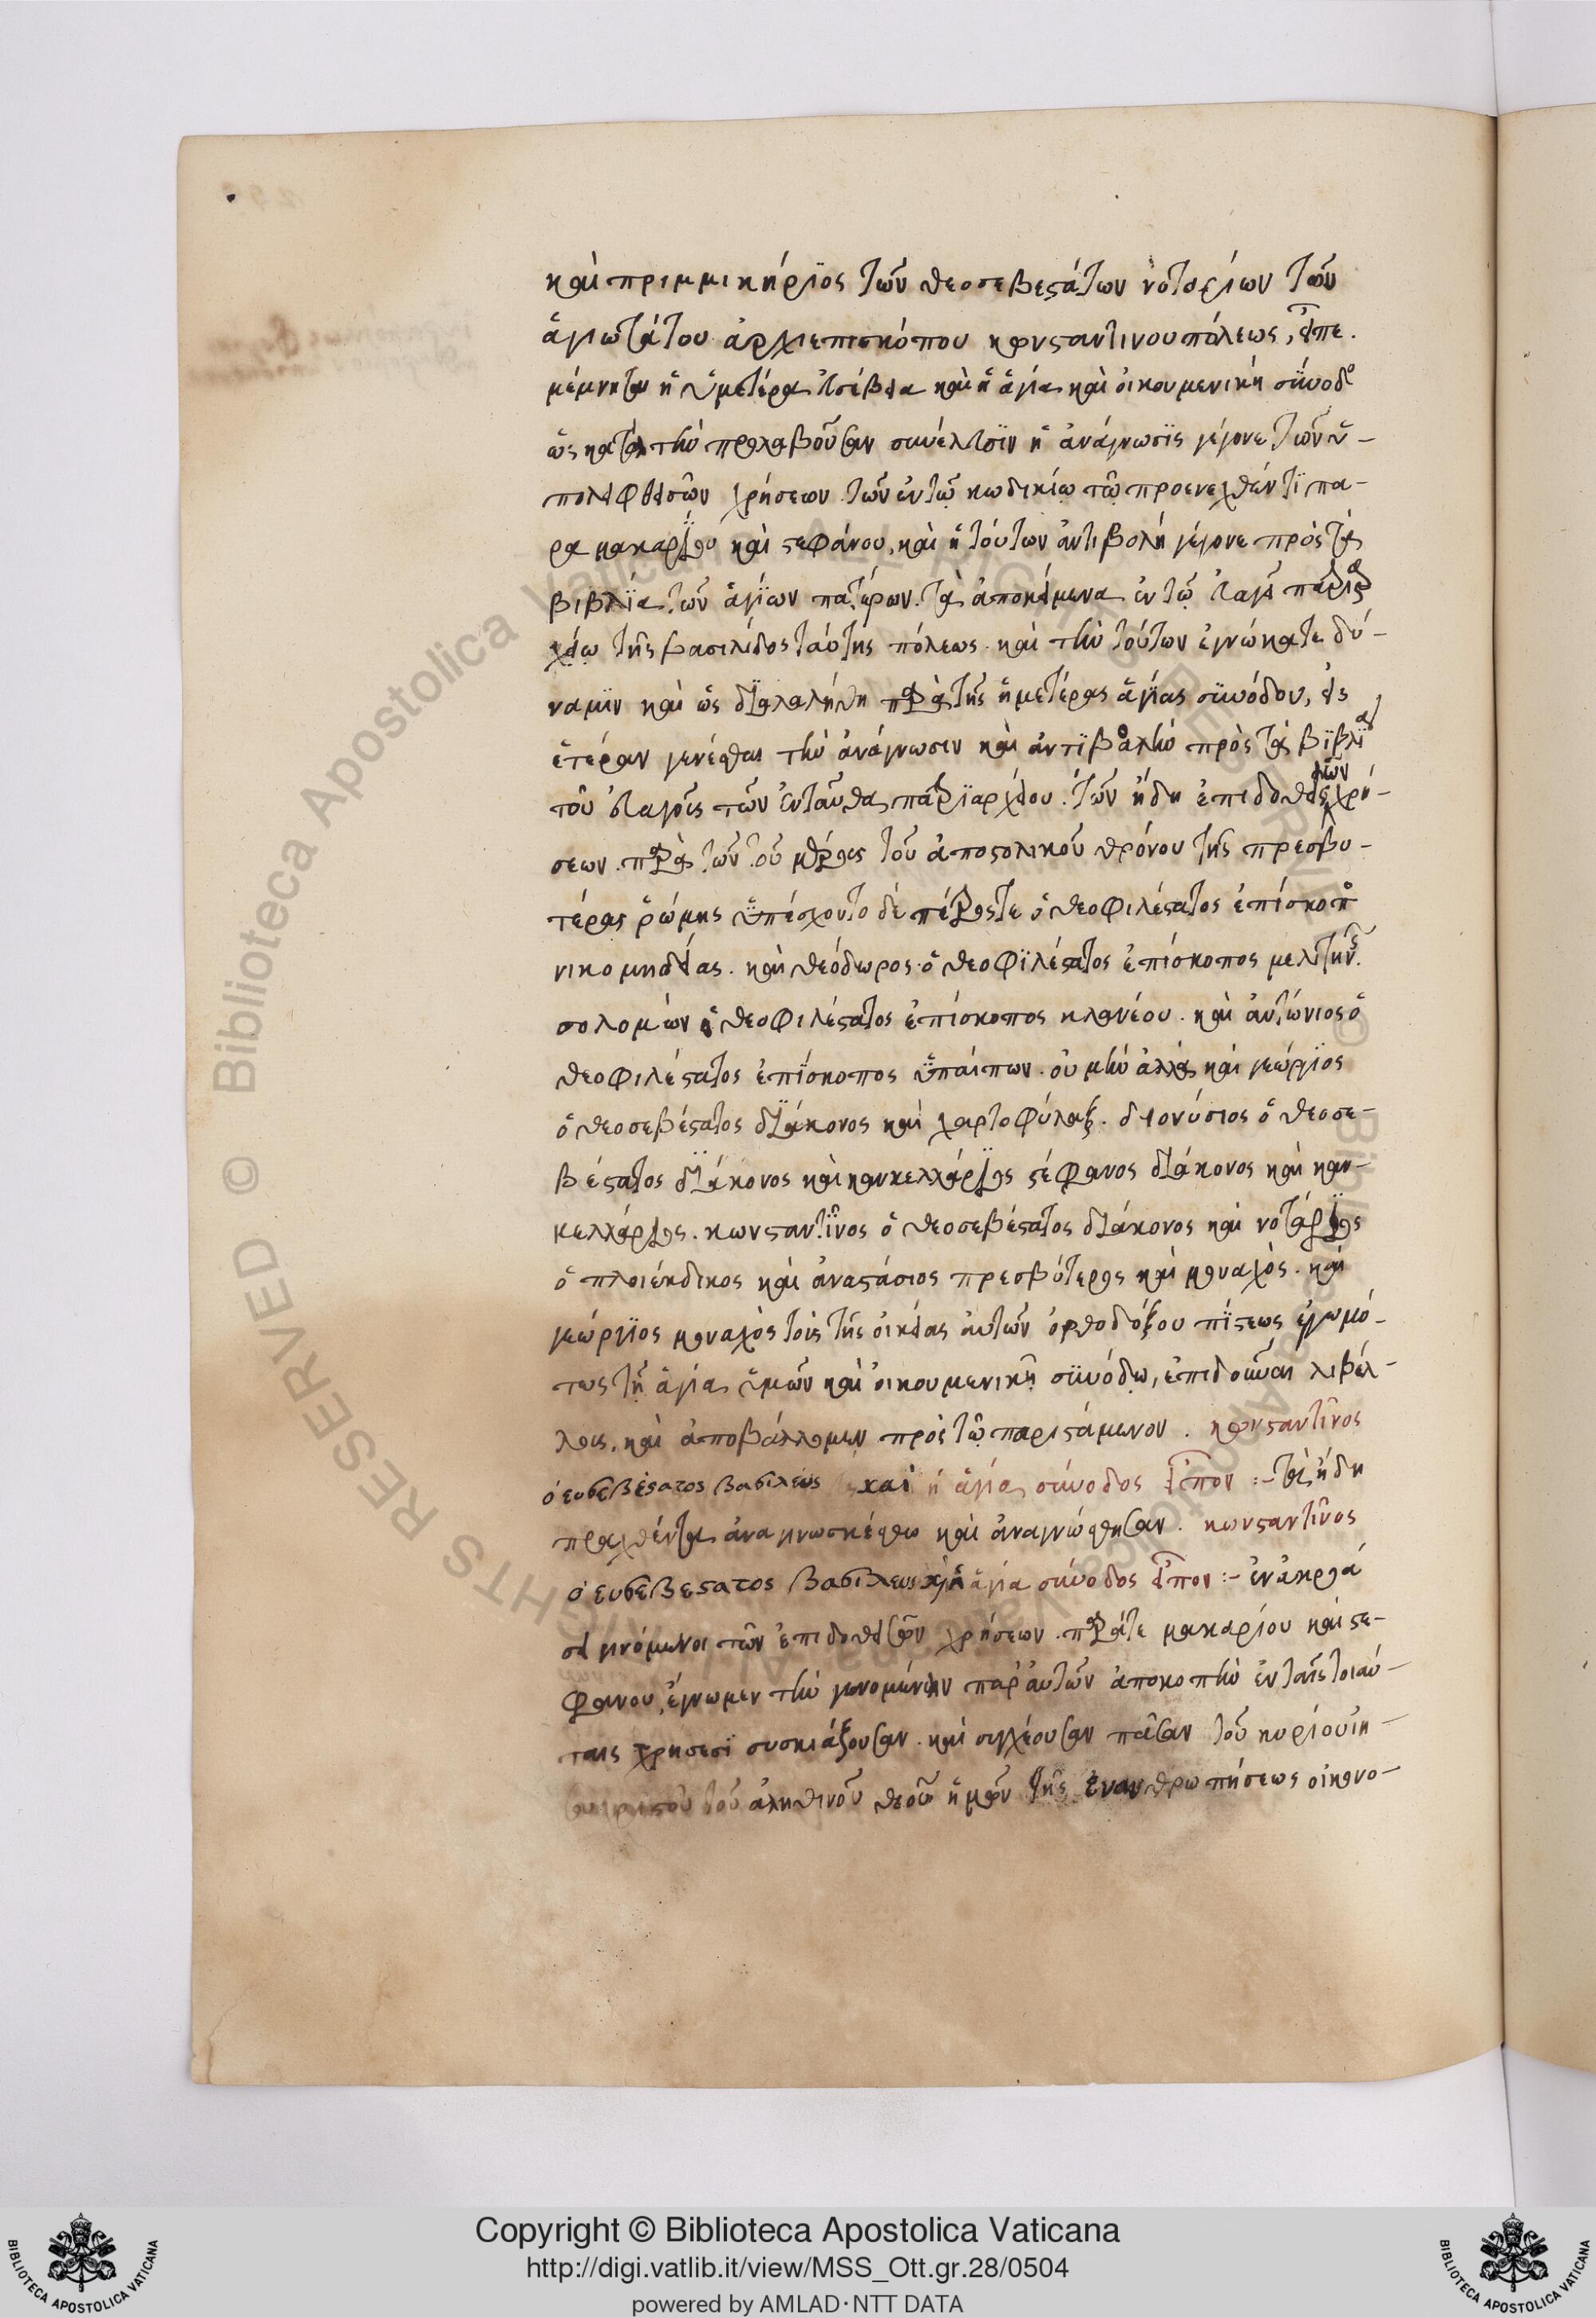 καὶ πριμμικήριος τῶν θεοσεβεστάτων νοταρίων τῶν
ἁγιωτάτου ἀρχιεπισκόπου κωνσταντινουπόλεως, εἶπε.
μέμνηται ἡ ὑμετέρα εὐσέβεια καὶ ἡ ἁγία καὶ οἰκουμενικὴ σύνοδο
ὡς κατὰ τὴν προλαβοῦσαν συνέλευσιν ἡ ἀνάγνωσις γέγονε τῶν ὑ-
πολειφθεισῶν χρήσεων. τῶν ἐν τῷ κωδικίῳ τῷ προενεχθέντι πα-
ρα μακαρίου καὶ στεφάνου, καὶ ἡ τούτων ἀντιβολὴ γέγονε πρὸς τὰ
βιβλία τῶν ἁγίων πατέρων. τὰ ἀποκείμενα ἐν τῷ εὐαγεῖ πατριαρ
χείῳ τῆς βασιλίδος ταύτης πόλεως. καὶ τὴν τούτων ἐγνώκατε δύ-
ναμιν καὶ ὡς διαλαλήθη παρὰ τῆς ἡμετέρας ἁγίας συνόδου, εἰς
ἑτέραν γενέσθαι τὴν ἀνάγνωσιν καὶ ἀντιβολὴν πρὸς τὰ βιβλία
τοῦ εὐαγοῦς τῶν ἐνταῦθα πατριαρχείου. τῶν ἤδη ἐπιδοθεισῶν χρή-
σεων. παρὰ τῶν τοῦ μέρους τοῦ ἀποστολικοῦ θρόνου τῆς πρεσβυ-
τέρας ῥώμης ὑπέσχοντο δὲ πέτρος τε ὁ θεοφιλέστατος ἐπίσκοπο
νικομηδείας. καὶ θεόδωρος ὁ θεοφιλέστατος ἐπίσκοπος μελιτηνῆς.
σολομὼν ὁ θεοφιλέστατος ἐπίσκοπος κλανέου. καὶ ἀντώνιος ὁ
θεοφιλέστατος ἐπίσκοπος ὑπαίπων. οὐ μὴν ἀλλὰ καὶ γεώργιος
ὁ θεοσεβέστατος διάκονος καὶ χαρτοφύλαξ. διονύσιος ὁ θεοσε-
βέστατος διάκονος καὶ κανκελλάριος στέφανος διάκονος καὶ καν-
κελλάριος. κωνσταντῖνος ὁ θεοσεβέστατος διάκονος καὶ νοτάριος
ὁ πλοιέκδικος καὶ ἀναστάσιος πρεσβύτερος καὶ μοναχὸς. καὶ
γεώργιος μοναχὸς τοὺς τῆς οἰκείας αὐτῶν ὀρθοδόξου πίστεως ἐγωμό-
τως τῇ ἁγίᾳ ὑμῶν καὶ οἰκουμενικῇ συνόδῳ, ἐπιδοῦναι λιβέλ-
λους, καὶ ἀποβάλλομεν πρὸς τῷ παριστάμενον. κωνσταντῖνος
ὁ εὐσεβέστατος βασιλεὺς καὶ ἡ ἁγία σύνοδος εἶπον :- τὰ ἤδη
πραχθέντα ἀναγνωσκέσθω καὶ ἀναγνώσθησαν. κωνσταντῖνος
ὁ εὐσεβέστατος βασιλεὺς καὶ ἡ ἁγία σύνοδος εἶπον :- ἐν ἀκροά
σει γινόμενοι τῶν ἐπιδοθεισῶν χρήσεων. παρά τε μακαρίου καὶ στε-
φανου, ἔγνωμεν τὴν γενομένην παρ' αὐτῶν ἀποκοπὴν ἐν ταῖς τοιαύ-
ταις χρησεσι συσκιάζουσαν. καὶ συγχέουσαν πᾶσαν τοῦ κυρίου ἰη-
σου χριστοῦ τοῦ ἀληθινοῦ θεοῦ ἡμῶν τῆς ἐνανθρωπήσεως οἰκονο-
Copyright © Biblioteca Apostolica Vaticana
http://digi.vatlib.it/view/MSS_Ott.gr.28/0504
powered by AMLAD·NTT DATA